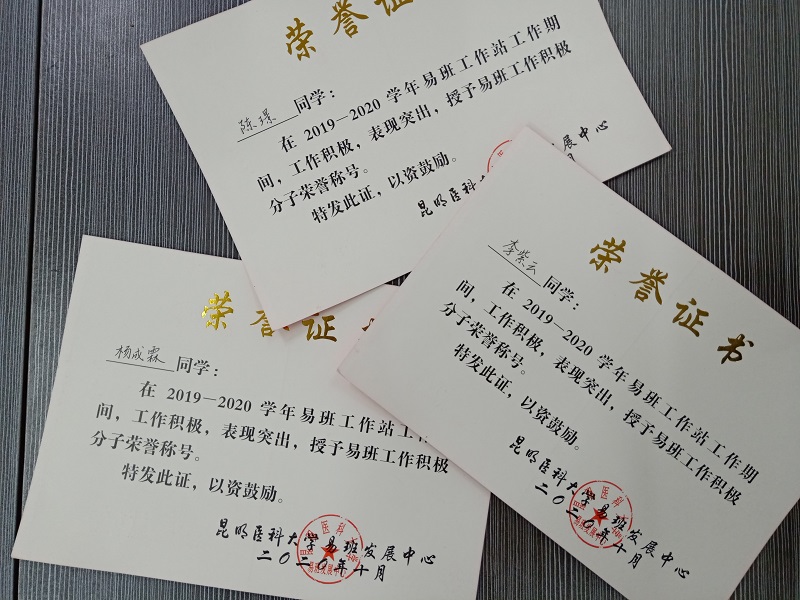 荣誉证
陈璟 同学：
在 2019—2020 学年易班工作站工作期
间，工作积极，表现突出，授予易班工作积极
分子荣誉称号。
特发此证，以资鼓励。
昆明医科
展中心
月
荣誉证书
李紫云 同学：
在 2019—2020 学年易班工作站工作期
间，工作积极，表现突出，授予易班工作积极
分子荣誉称号。
特发此证，以资鼓励。
昆明医科大学易班发展中心
二〇二〇年十月
荣誉证
杨成霖 同学：
在 2019—2020 学年易班工作站工
间，工作积极，表现突出，授予易班工作积极
分子荣誉称号。
特发此证，以资鼓励。
昆明医科大学易班发展中心
二〇二〇年十月
易班发展中心